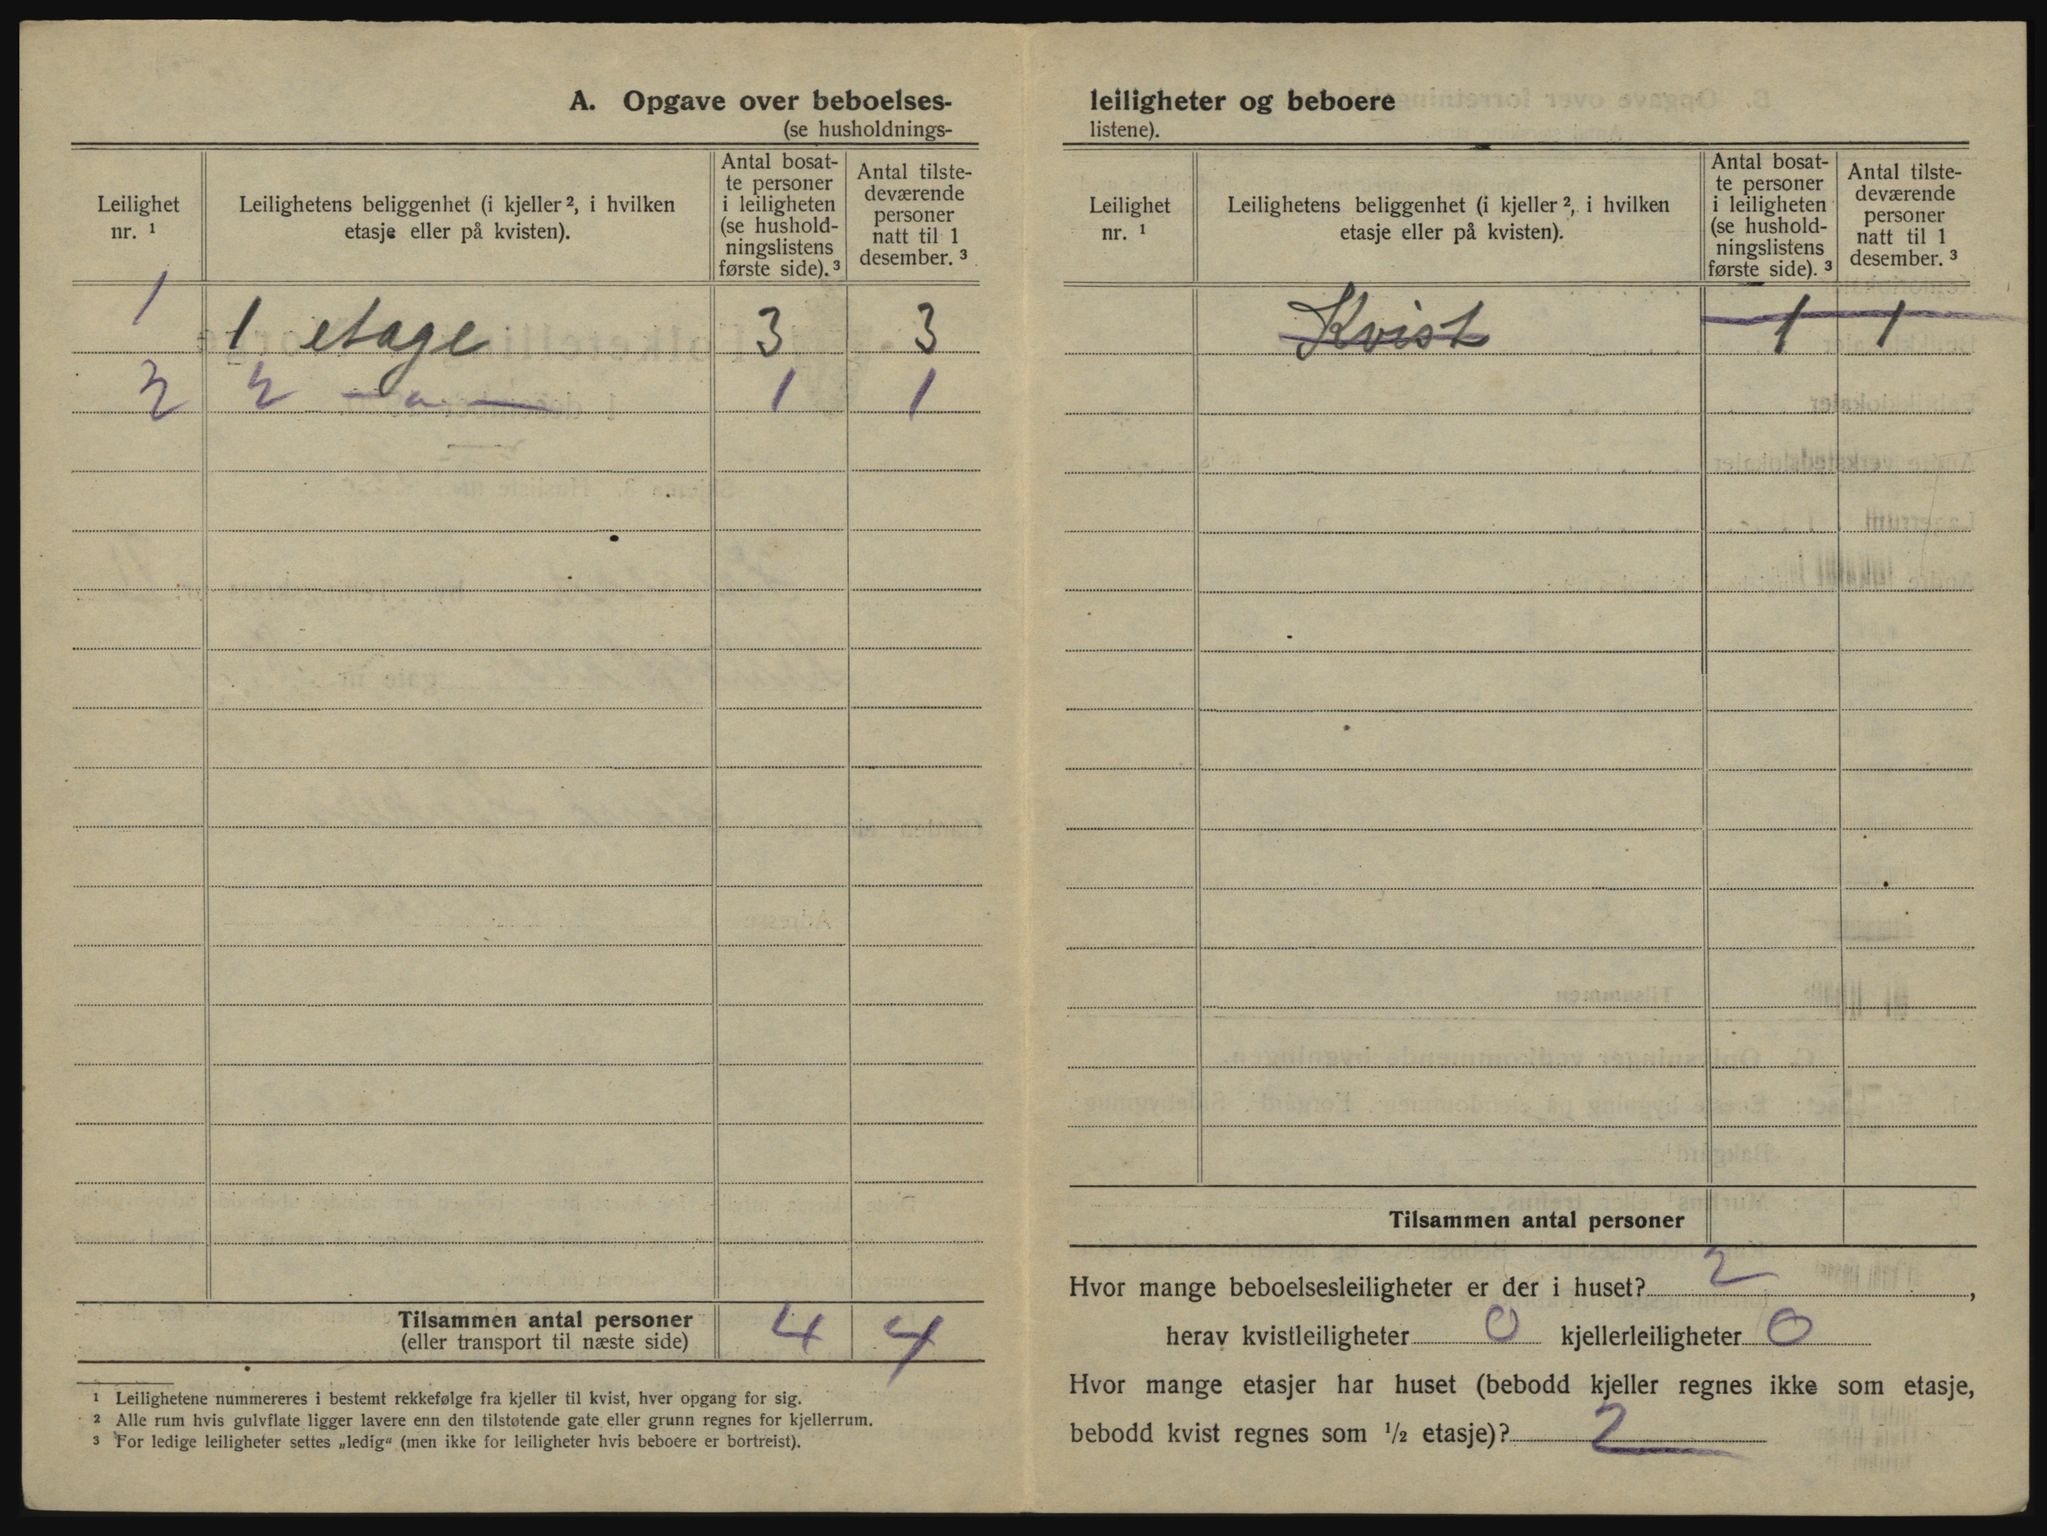 A. Opgave over beboelses-
(se husholdnings-
Leilighet
nr. ¹
Leilighetens beliggenhet (i kjeller ², i hvilken
etasje eller på kvisten).
Antal bosat-
te personer
i leiligheten
(se hushold-
ningslistens
første side). ³
Antal tilste-
deværende
personer
natt til 1
desember. ³
1 1 etage 3 3
2 2 — „ — 1 1
Tilsammen antal personer
(eller transport til næste side)
4 4
¹ Leilighetene nummereres i bestemt rekkefølge fra kjeller til kvist, hver opgang for sig.
² Alle rum hvis gulvflate ligger lavere enn den tilstøtende gate eller grunn regnes for kjellerrum.
³ For ledige leiligheter settes „ledig“ (men ikke for leiligheter hvis beboere er bortreist).
leiligheter og beboere
listene).
Leilighet
nr. ¹
Leilighetens beliggenhet (i kjeller ², i hvilken
etasje eller på kvisten).
Antal bosat-
te personer
i leiligheten
(se hushold-
ningslistens
første side). ³
Antal tilste-
deværende
personer
natt til 1
desember. ³
Kvist 1 1
Tilsammen antal personer
Hvor mange beboelsesleiligheter er der i huset? 2,
herav kvistleiligheter 0 kjellerleiligheter 0
Hvor mange etasjer har huset (bebodd kjeller regnes ikke som etasje,
bebodd kvist regnes som ½ etasje)? 2